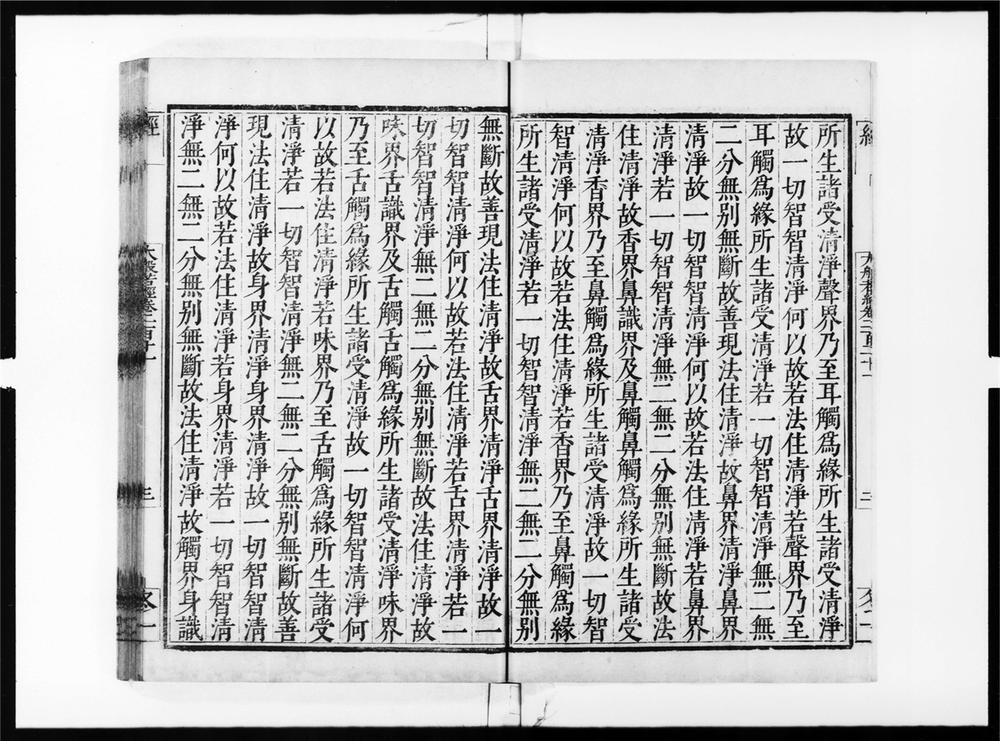 所生諸受清淨聲界乃至耳觸爲緣所生諸受清淨
故一切智智清淨何以故若法住清淨若聲界乃至
耳觸爲緣所生諸受清淨若一切智智清淨無二無
二分無别無斷故善現法住清淨故鼻界清淨鼻界
清淨故一切智智清淨何以故若法住清淨若鼻界
清淨若一切智智清淨無二無二分無别無斷故法
住清淨故香界鼻識界及鼻觸鼻觸爲緣所生諸受
清淨香界乃至鼻觸爲緣所生諸受清淨故一切智
智清淨何以故若法住清淨若香界乃至鼻觸爲緣
所生諸受清淨若一切智智清淨無二無二分無别
無斷故善現法住清淨故舌界清淨舌界清淨故一
切智智清淨何以故若法住清淨若舌界清淨若一
切智智清淨無二無二分無别無斷故法住清淨故
味界舌識界及舌觸舌觸爲緣所生諸受清淨味界
乃至舌觸爲緣所生諸受清淨故一切智智清淨何
以故若法住清淨若味界乃至舌觸爲緣所生諸受
清淨若一切智智清淨無二無二分無别無斷故善
現法住清淨故身界清淨身界清淨故一切智智清
淨何以故若法住清淨若身界清淨若一切智智清
淨無二無二分無别無斷故法住清淨故觸界身識
經
三